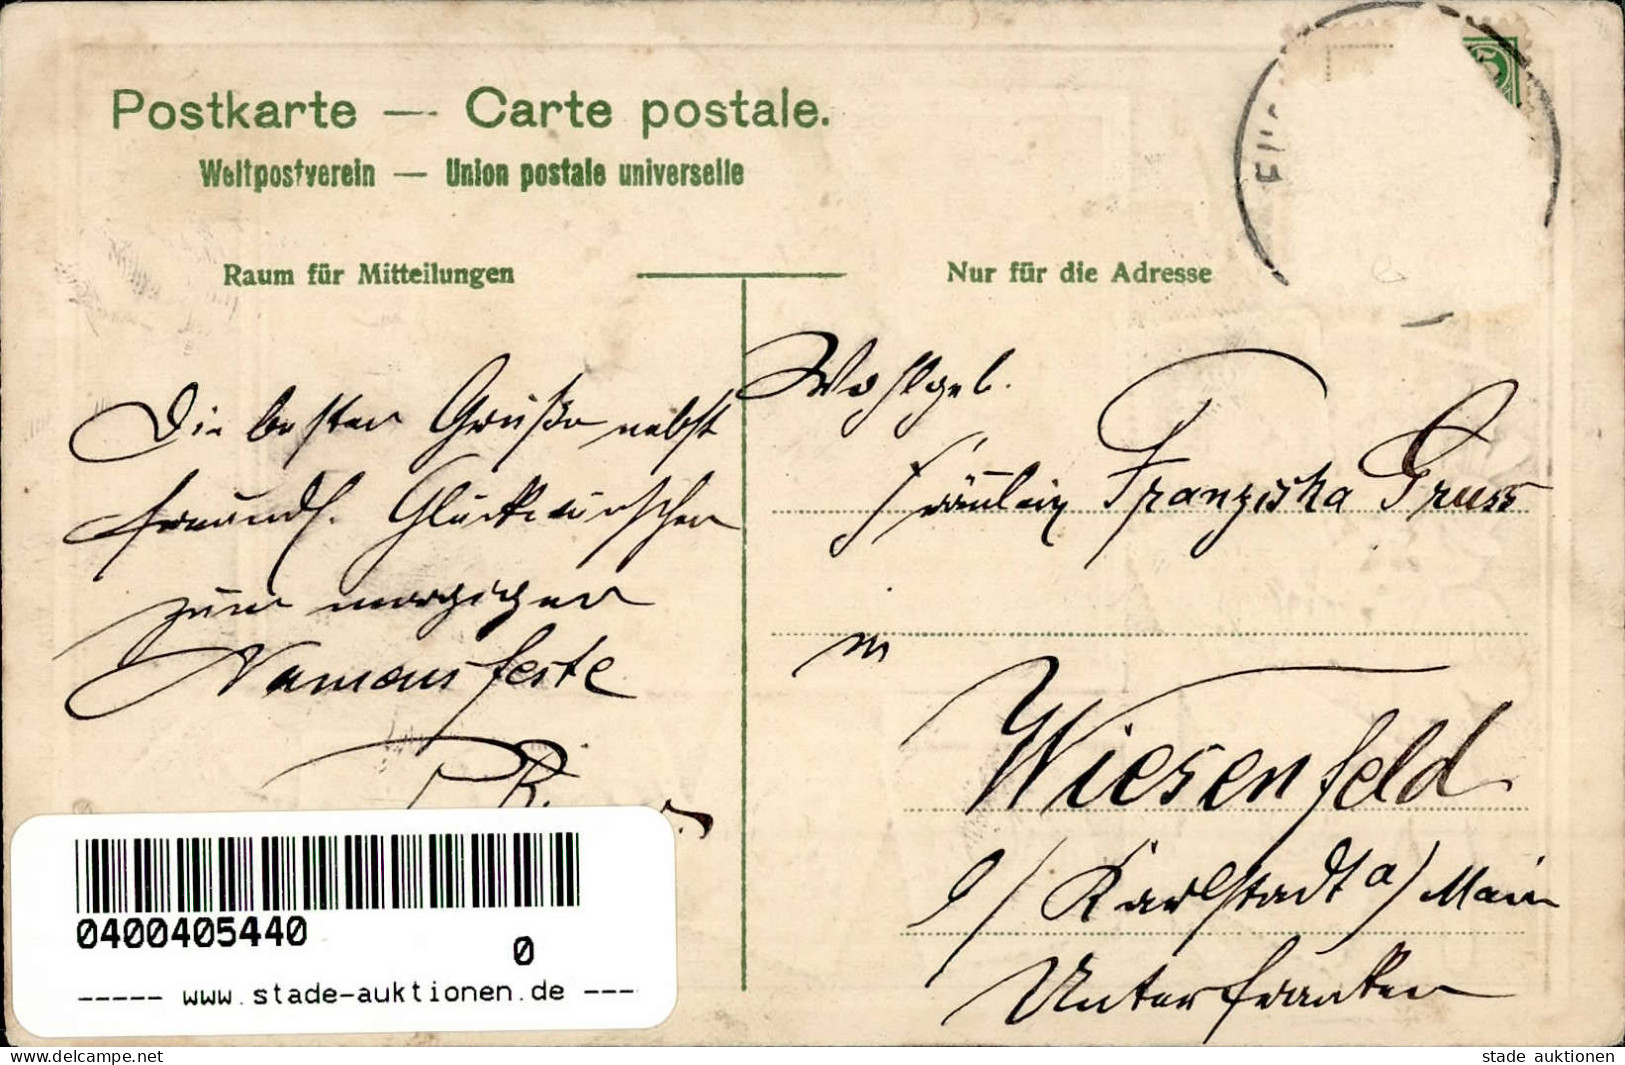 Postkarte — Carte postale.
Weltpostverein — Union postale universelle
Raum für Mitteilungen
Nur für die Adresse
Die besten Grüße nebst
freundl. Glückwünschen
zum morgigen
Namensfeste
Wohlgeb.
Fräulein Franziska Gruss
in
Wiesenfeld
b/ Karlstadt a/ Main
Unterfranken
0400405440
0
----- www.stade-auktionen.de ---
https://www.ansichtskartenversand.com
stade auktionen